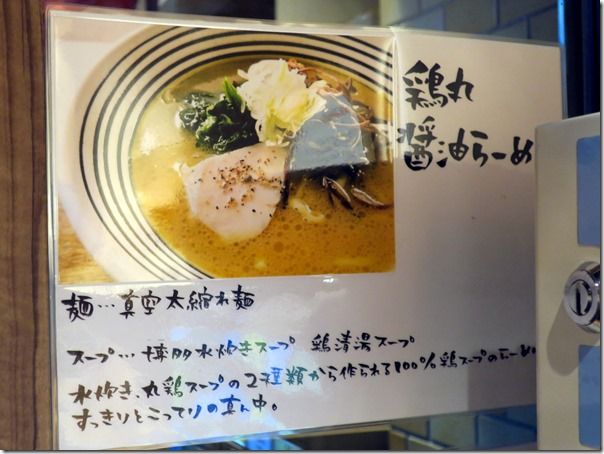 鶏丸
醤油らーめ
麺…真空太縮れ麺
スープ…博多水炊きスープ 鶏清湯スープ
水炊き、丸鶏スープの2種類から作られる100%鶏スープのらーめ
すっきりとこってりの真ん中。